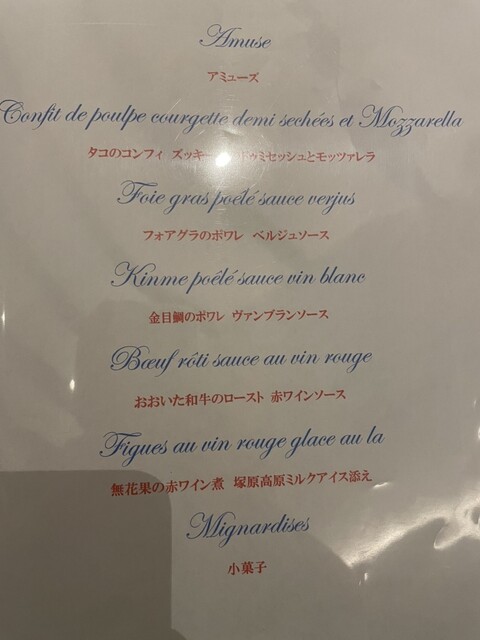 Amuse
アミューズ
Confit de poulpe courgette demi sechées et Mozzarella
タコのコンフィ ズッキー ドゥミセッシュとモッツァレラ
Foie gras poêlé sauce verjus
フォアグラのポワレ ベルジュソース
Kinme poêlé sauce vin blanc
金目鯛のポワレ ヴァンブランソース
Bœuf rôti sauce au vin rouge
おおいた和牛のロースト 赤ワインソース
Figues au vin rouge glace au la
無花果の赤ワイン煮 塚原高原ミルクアイス添え
Mignardises
小菓子